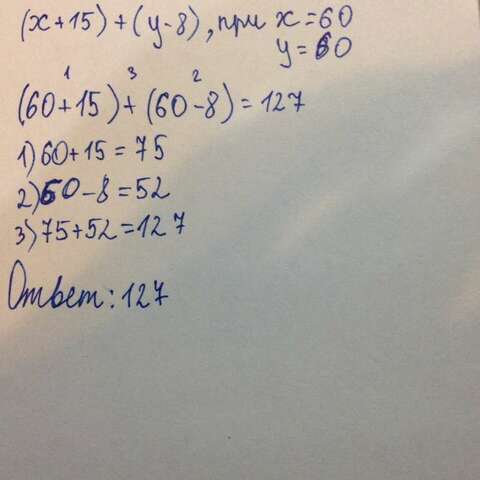 (x+15)+(y-8), при x=60
y=60
1 3 2
(60+15)+(60-8)=127
1) 60+15=75
2) 60-8=52
3) 75+52=127
Ответ: 127